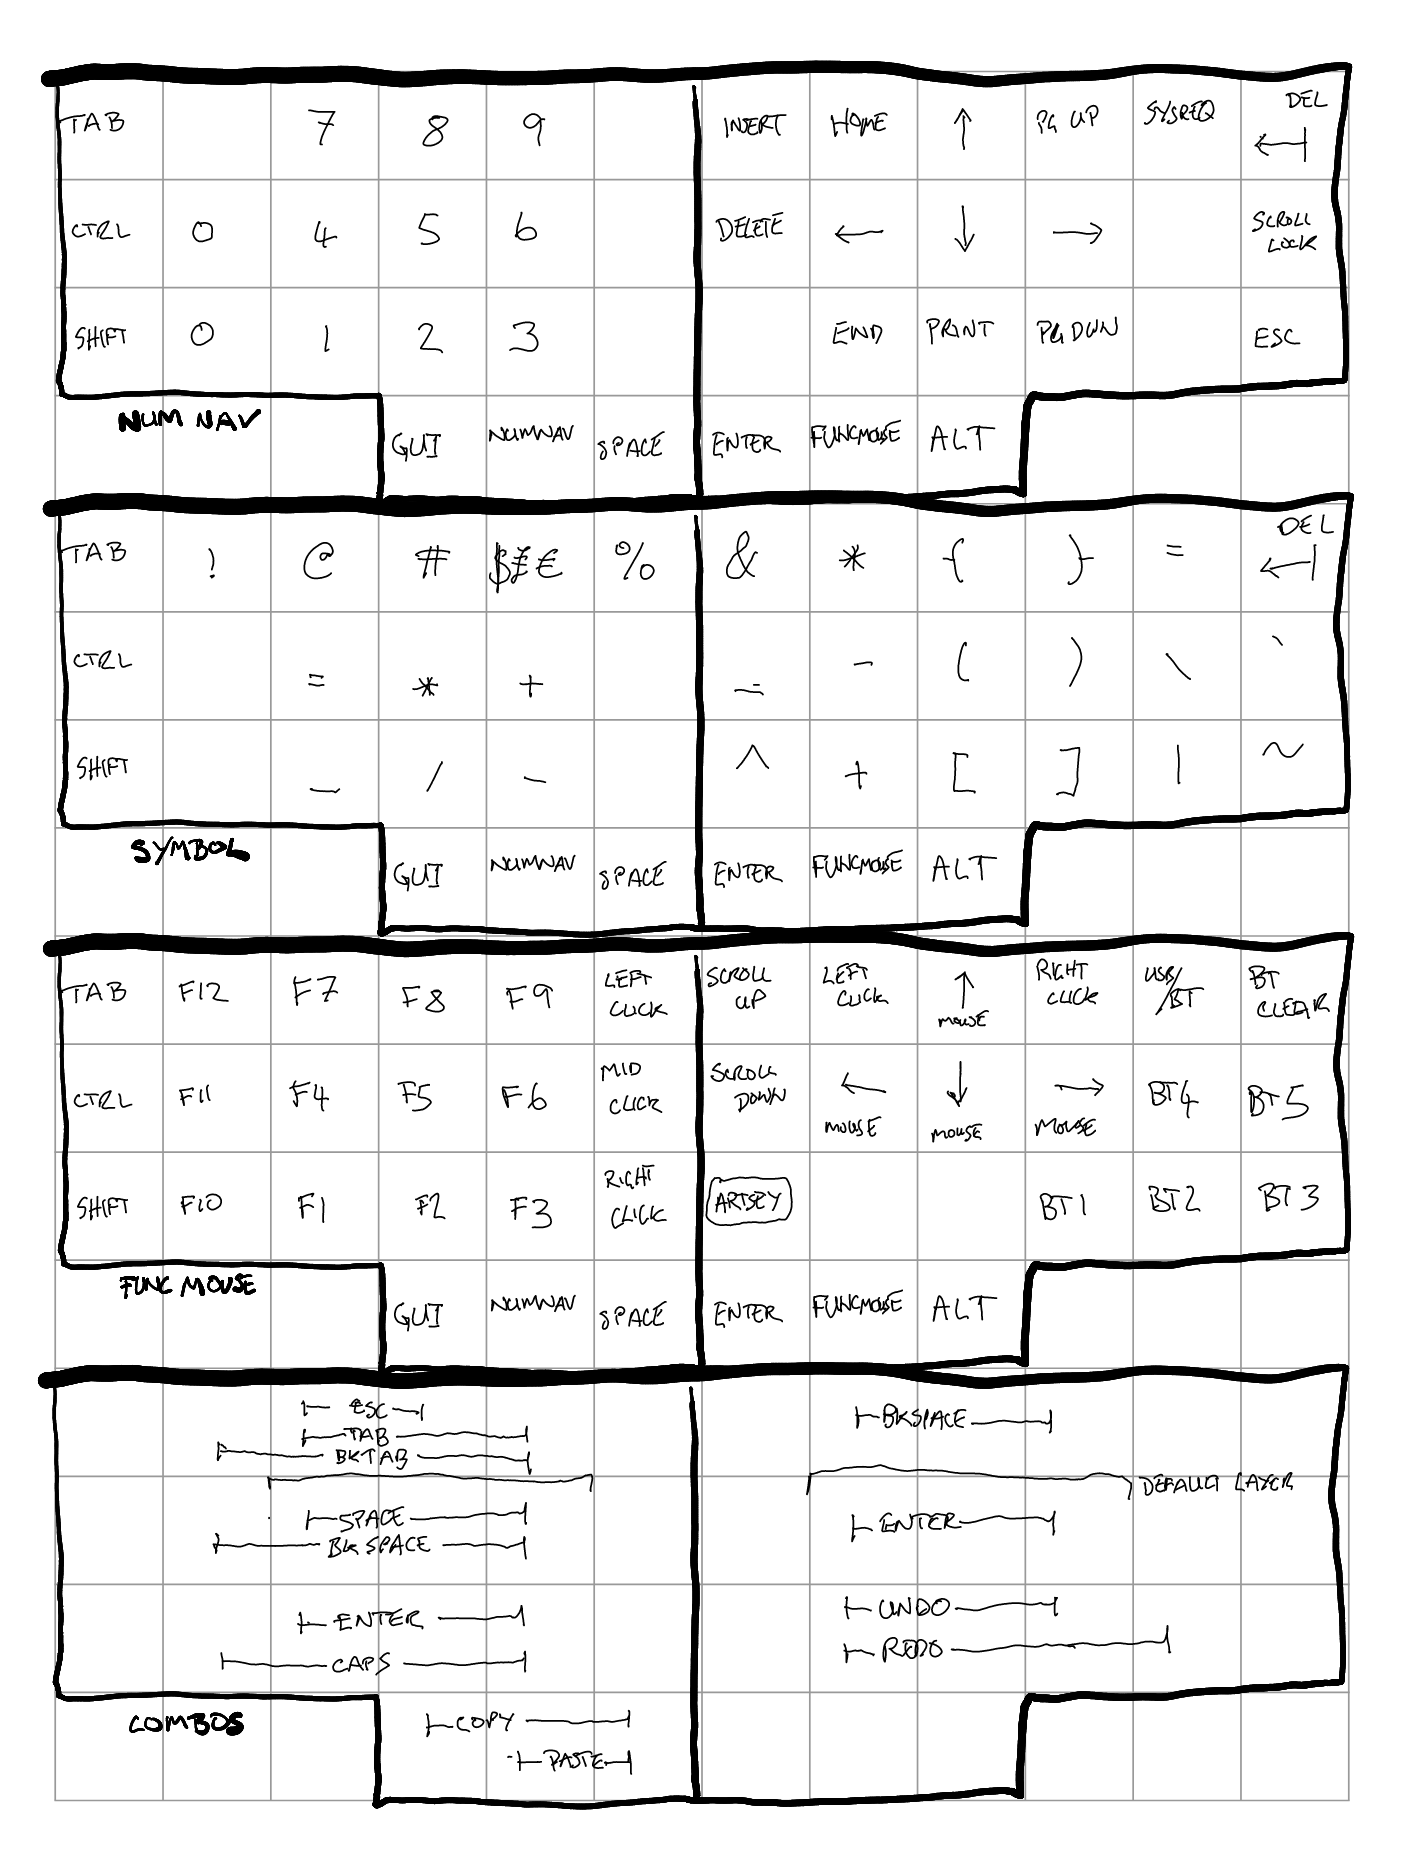 TAB 7 8 9 INSERT HOME ↑ PG UP SYSREQ DEL
←|
CTRL 0 4 5 6 DELETE ← ↓ → SCROLL
LOCK
SHIFT 0 1 2 3 END PRINT PG DWN ESC
NUM NAV
GUI NUMNAV SPACE ENTER FUNCMOUSE ALT
TAB ! @ # $ £ € % & * { } = DEL
←|
CTRL = * + - ( ) \ `
SHIFT _ / - ^ + [ ] | ~
SYMBOL
GUI NUMNAV SPACE ENTER FUNCMOUSE ALT
TAB F12 F7 F8 F9 LEFT
CLICK
SCROLL
UP
LEFT
CLICK
↑
MOUSE
RIGHT
CLICK
USB/
BT
BT
CLEAR
CTRL F11 F4 F5 F6 MID
CLICK
SCROLL
DOWN
←
MOUSE
↓
MOUSE
→
MOUSE
BT4 BT5
SHIFT F10 F1 F2 F3 RIGHT
CLICK
ARTSEY BT1 BT2 BT3
FUNC MOUSE
GUI NUMNAV SPACE ENTER FUNCMOUSE ALT
ESC
TAB
BKTAB
BKSPACE
DEFAULT LAYER
SPACE
BKSPACE
ENTER
ENTER
CAPS
UNDO
REDO
COMBOS
COPY
PASTE